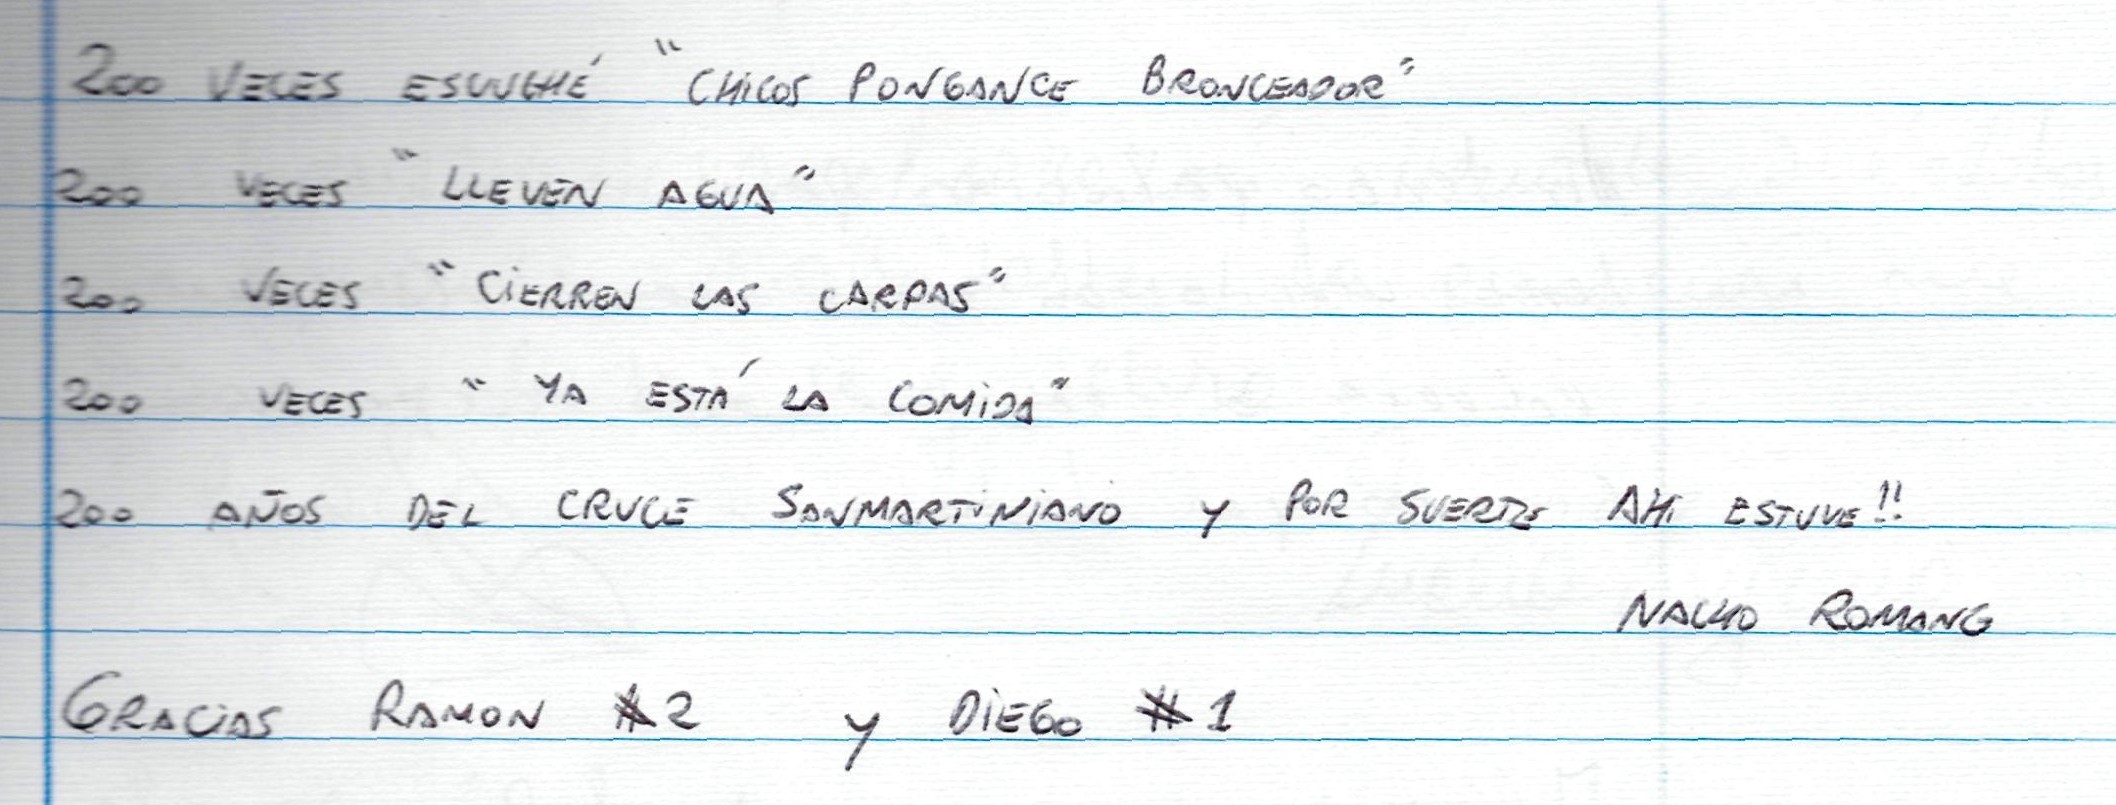 200 VECES ESCUCHÉ "CHICOS PONGANCE BRONCEADOR"
200 VECES "LLEVEN AGUA"
200 VECES "CIERREN LAS CARPAS"
200 VECES "YA ESTÁ LA COMIDA"
200 AÑOS DEL CRUCE SANMARTINIANO Y POR SUERTE AHI ESTUVE!!
NACHO ROMANG
GRACIAS RAMON #2 Y DIEGO #1